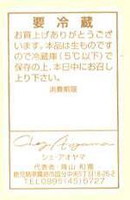 要冷蔵
お買上げありがとうござ
います。本品は生ものです
ので冷蔵庫(5℃以下)で
保存の上、本日中にお召し
上り下さい。
消費期限
Chez Aoyama
シェ・アオヤマ
代表者 青山
TEL0995(45)6727